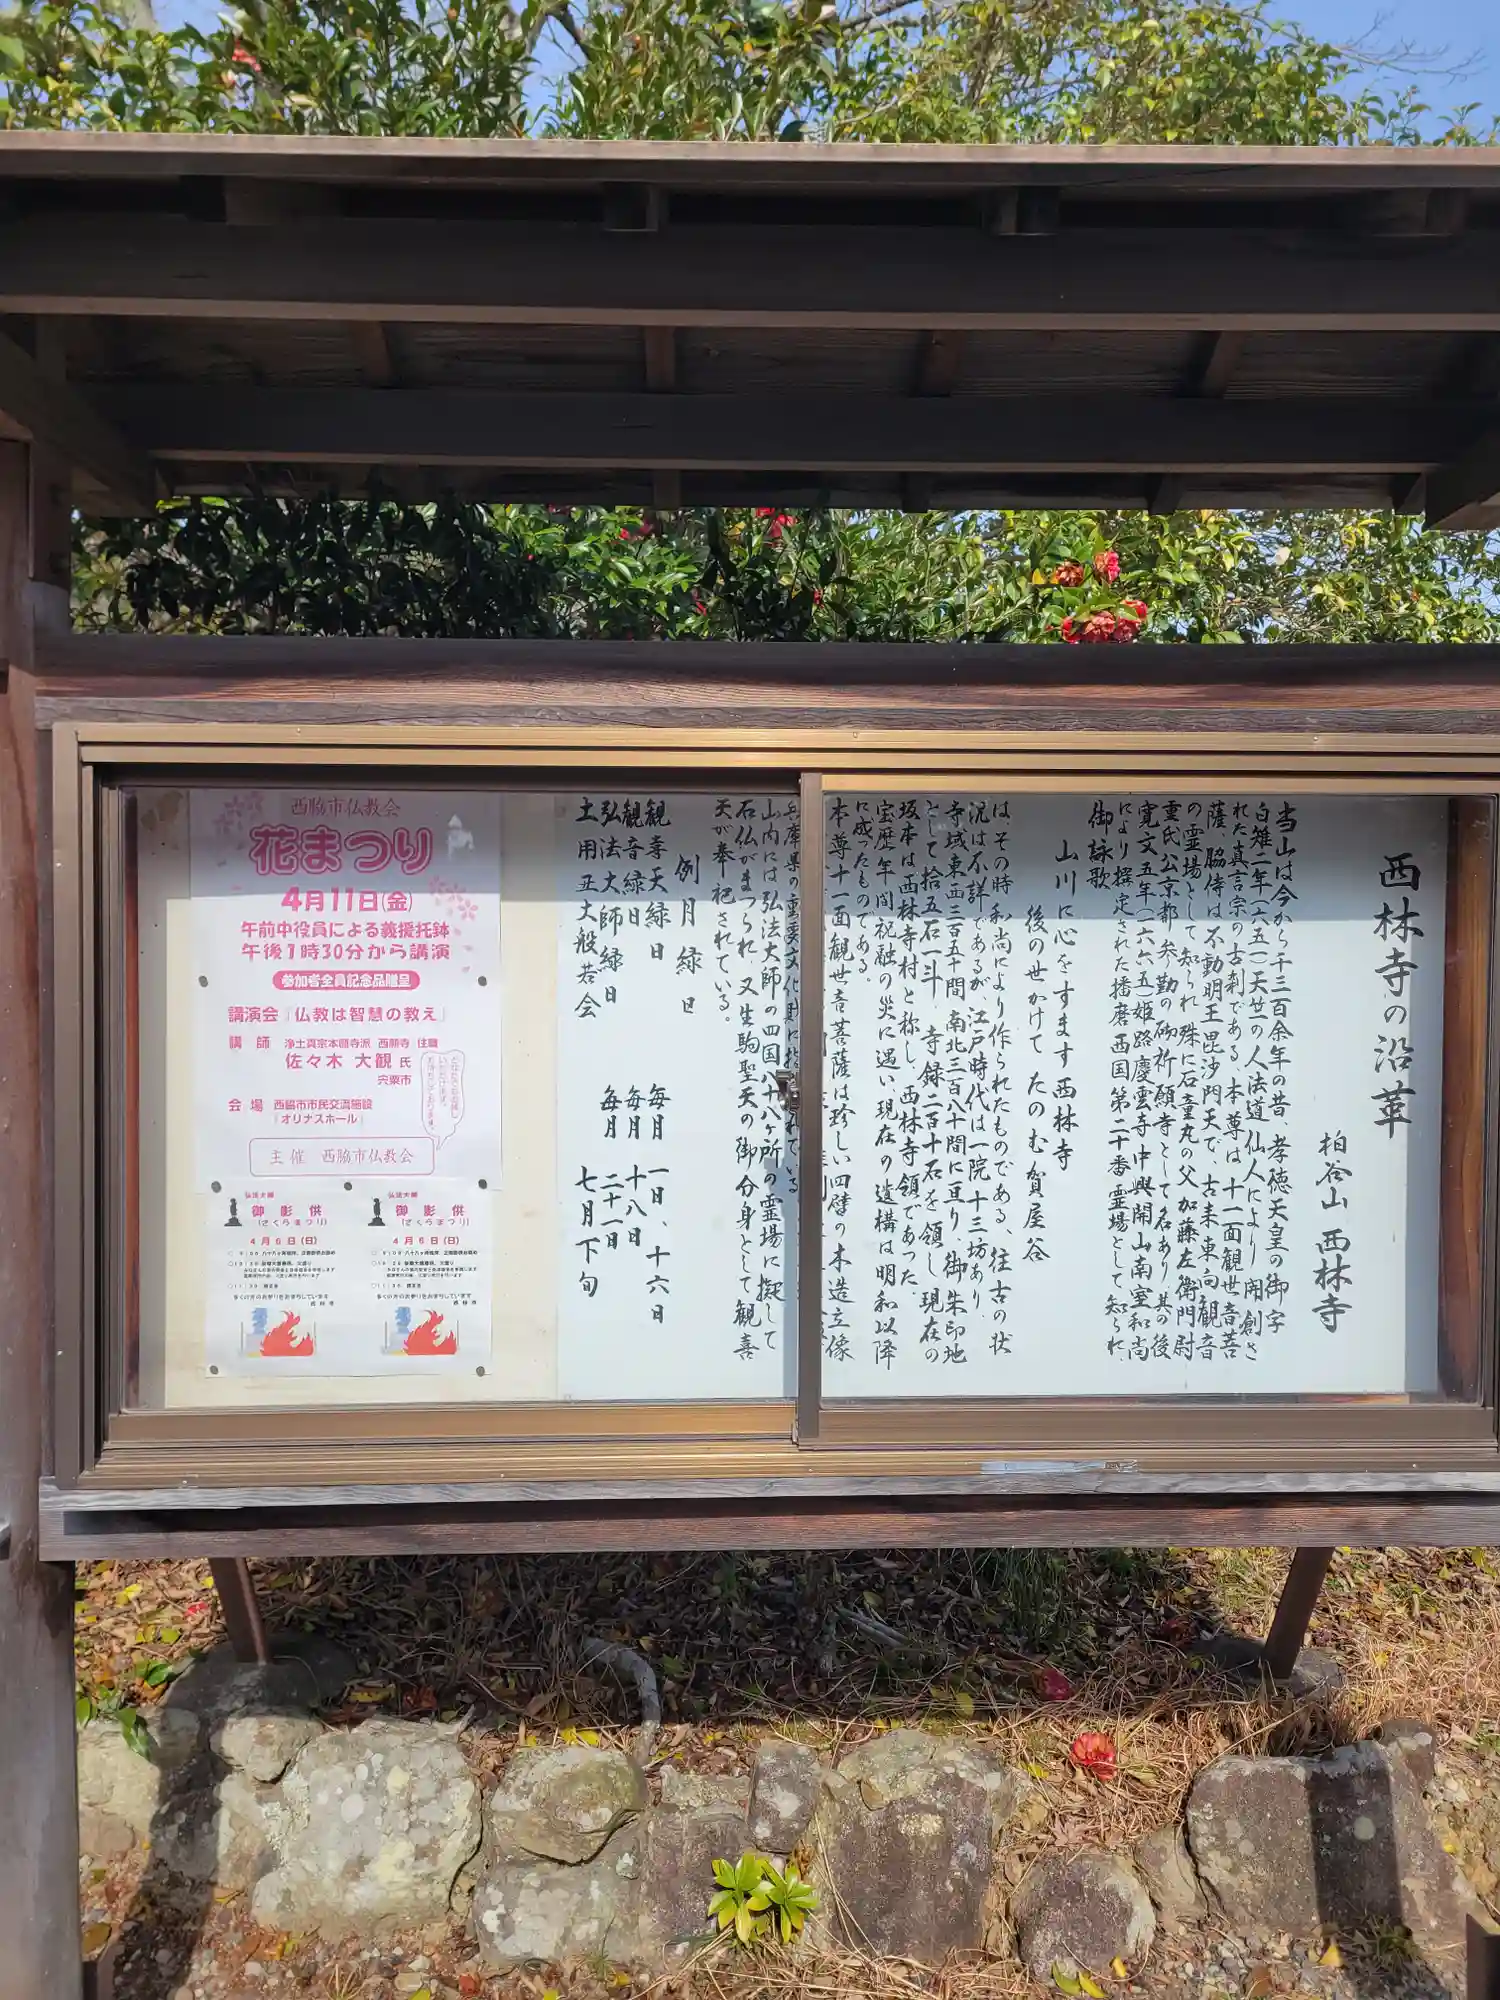 西林寺の沿革
柏谷山 西林寺
当山は今から千三百余年の昔、孝徳天皇の御字
白雉二年(六五一)天竺の人法道仙人により開創さ
れた真言宗の古刹である、本尊は十一面観世音菩
薩、脇侍は不動明王毘沙門天で、古来東向観音
の霊場として知られ殊に石童丸の父加藤左衛門尉
重氏公京都参勤の砌祈願寺として名あり其の後
寛文五年(一六六五)姫路慶雲寺中興開山南室和尚
により撰定された播磨西国第二十番霊場として知られ、
御詠歌
山川に心をすます西林寺
後の世かけて たのむ賀屋谷
は、その時 和尚により作られたものである、往古の状
況は不詳であるが、江戸時代は一院十三坊あり
寺域東西三百五十間、南北三百八十間に亘り、御朱印地
として拾五石一斗、寺録二百十石を領し現在の
坂本は西林寺村と称し、西林寺領であった、
宝歴年間祝融の災に遇い、現在の遺構は明和以降
に成ったものである。
本尊十一面観世音菩薩は珍しい四臂の木造立像
兵庫県の重要文化財に指
れている
山内には弘法大師の四国八十八ヶ所の霊場に擬して
石仏がまつられ、又生駒聖天の御分身として観喜
天が奉祀されている。
例月縁日
観喜天縁日 毎月 一日、十六日
観音縁日 毎月 十八日
弘法大師縁日 毎月 二十一日
土用丑大般若会 七月下旬
西脇市仏教会
花まつり
4月11日(金)
午前中役員による義援托鉢
午後1時30分から講演
参加者全員記念品贈呈
講演会「仏教は智慧の教え」
講師 浄土真宗本願寺派 西願寺 住職
佐々木 大観 氏
宍粟市
会場 西脇市市民交流施設
「オリナスホール」
主催 西脇市仏教会
弘法大師
御影供
(さくらまつり)
4月6日(日)
弘法大師
御影供
(さくらまつり)
4月6日(日)